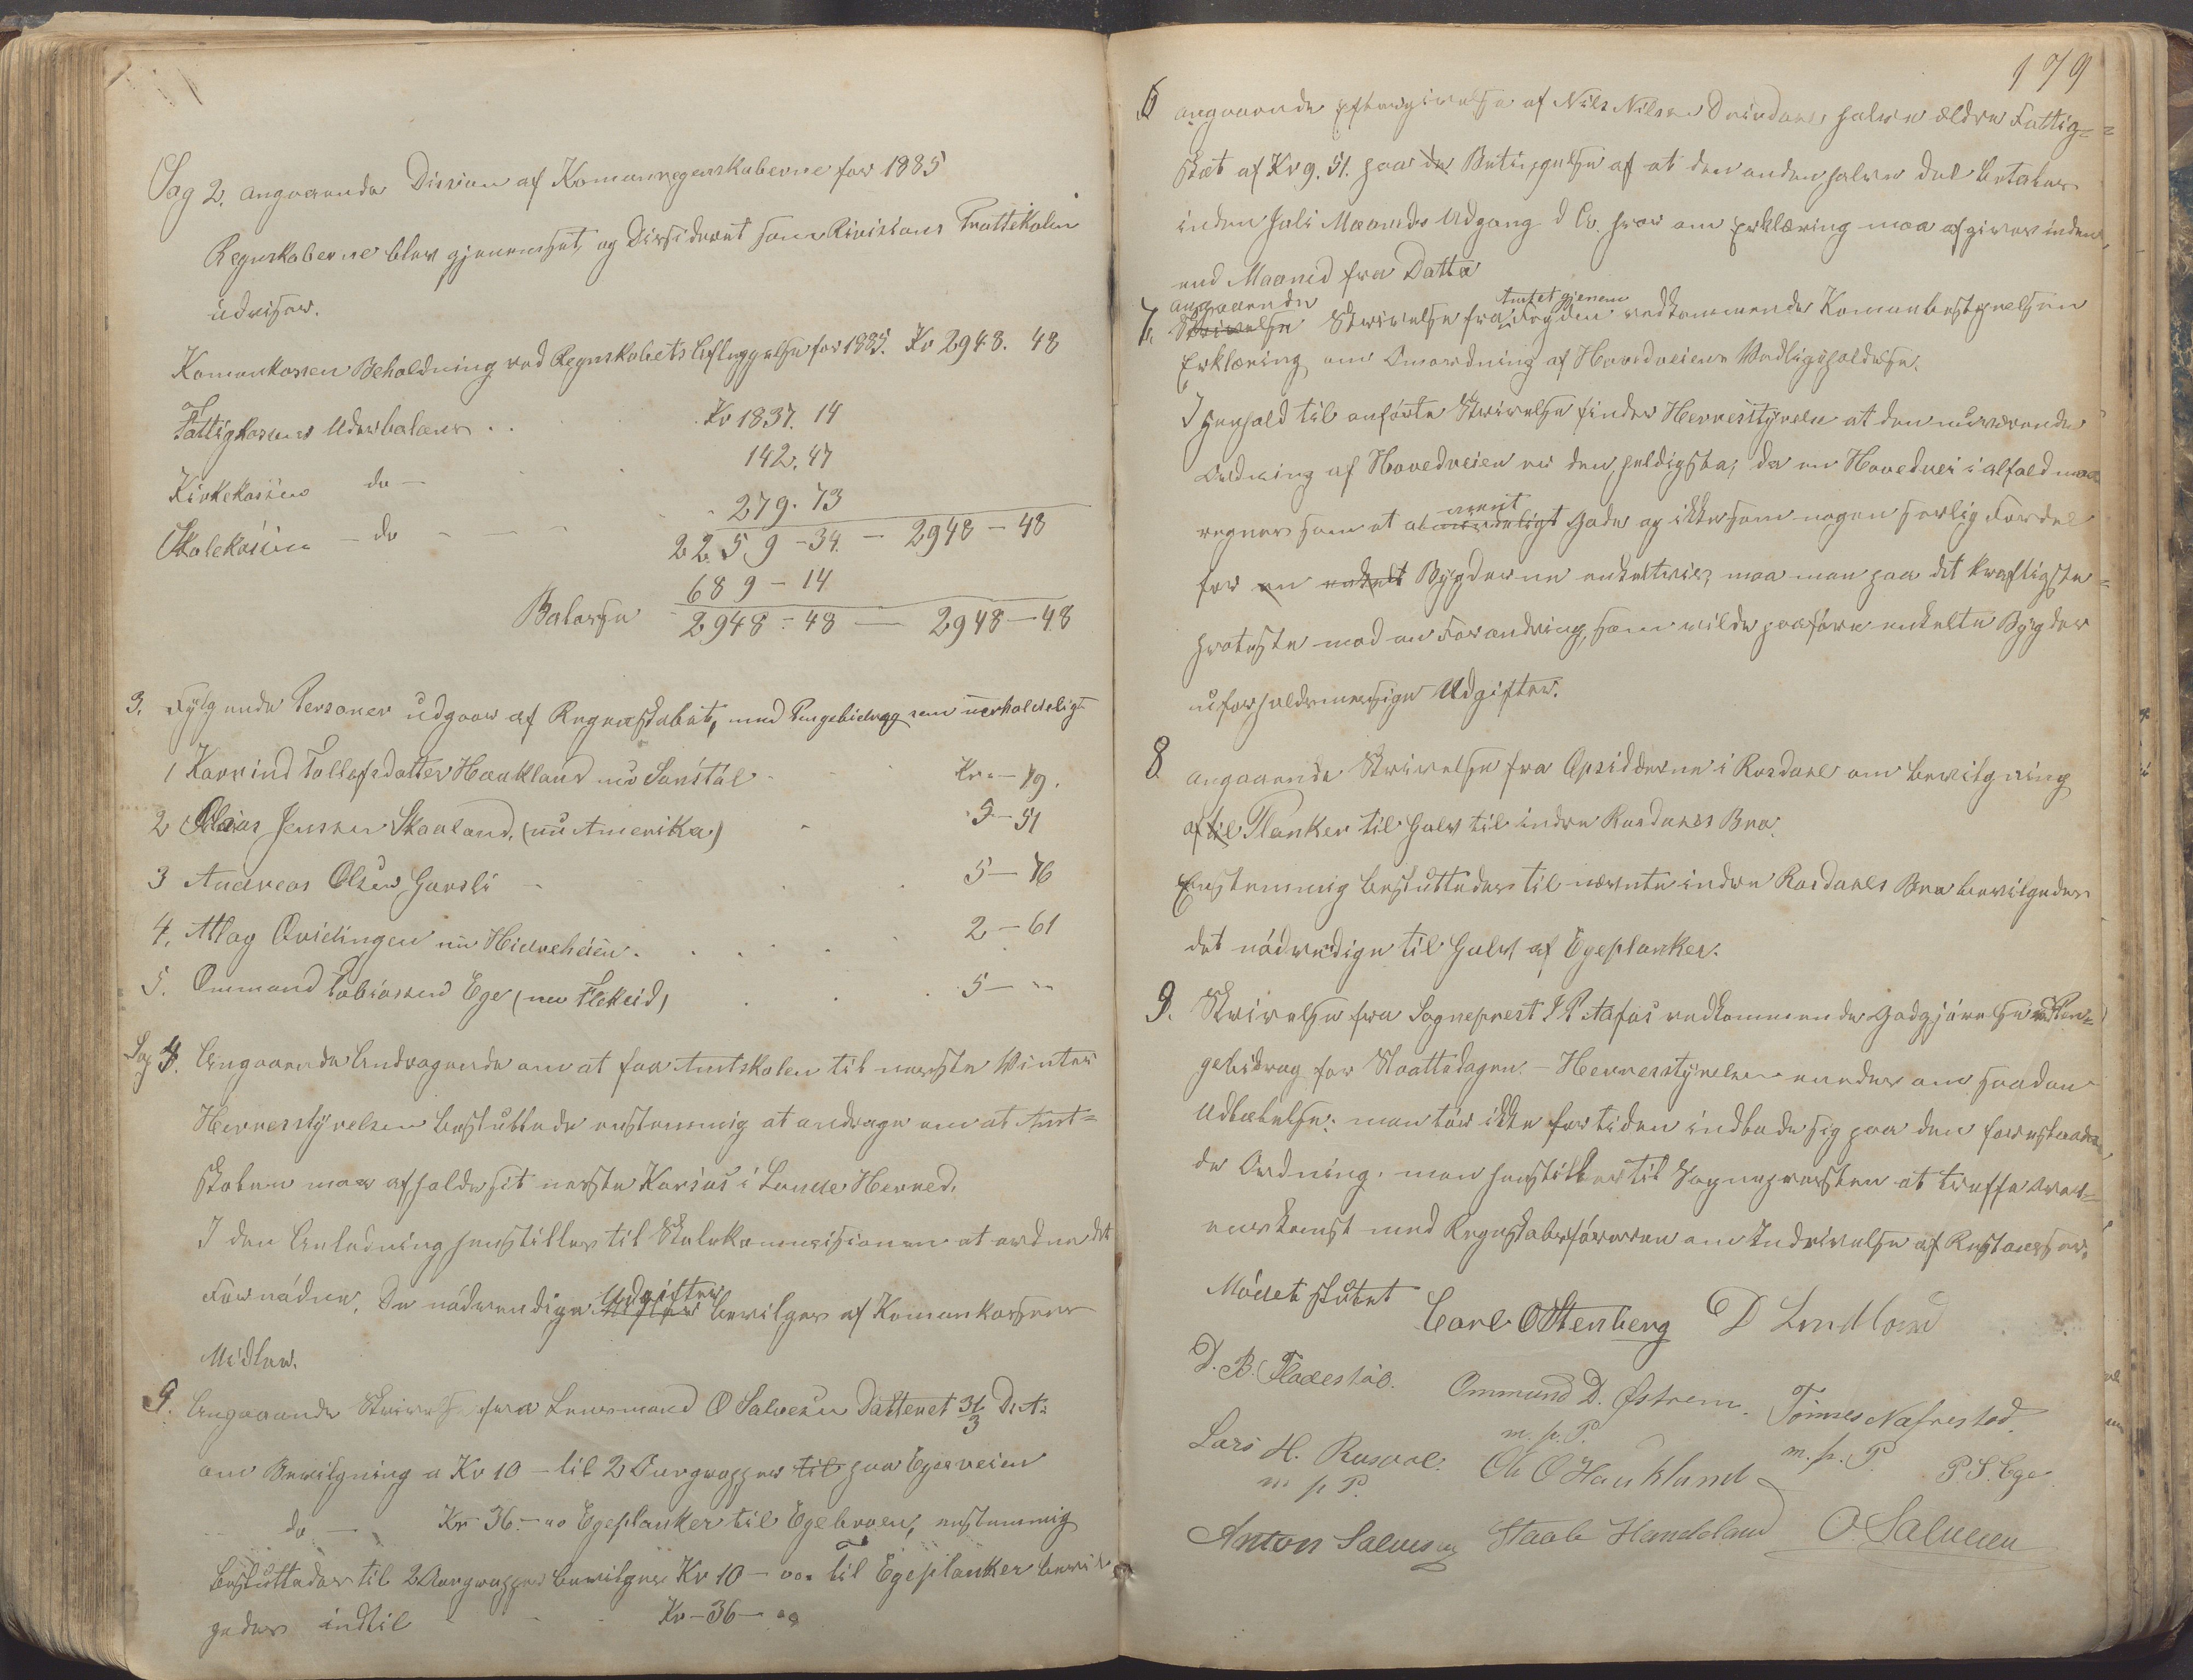 Sag 2. angaaende Dission af Komunregenskaberne for 1885
Regnskaberne blev gjennemset, og Dissideret som Rivisions Prottekolen
udviser.
Komunkassen Beholdning ved Regnskabets Aflæggelse for 1885. Kr 2948. 48
Fattigkassens Underbalance . . Kr 1837. 14
142. 47
Kirkekassen do —
279. 73
Skolekassen — do - — 2259 - 34. — 2948 — 48
689 — 14
Balanse 2948 - 48 — 2948 — 48
3. Fylgende Personer udgaar af Regneskabet, med Pengebidrag som uerholdeligt
1 Karrind Tollefsdatter Haukland nu Sanstøl Kr „ — 79.
2 Elias Jensen Skaaland, (nu Amerika) - 3 — 51
3 Andreas Olsen Gursli - 5 — 76
4. Atlag Qvidingen nu Hidreheien . . . . 2 — 61
5. Ommund Tobiassen Ege (nu Flekeid) . . . 5 — „
Sag 4. Angaaende Andragende om at faa Amtskolen til næste Vinter
Herresstyrelsen besluttede enstemmig at andrage om at Amt-
skolen maa afholde sit neste Kursus i Lunde Herred.
I den Anledning henstilles til Skolekommisionen at ordne det
Fornødne. De nødvendige Udgifter bevilges af Komunkassens
Midler.
5. Angaaende Skrivelse fra Lensmand O Salvesen Datteret 31/3 D. A:
om Bevilgning a Kr 10 — til 2 Aurgrupper til paa Egesveien
do — Kr 36. — 00 Egeplanker til Egebroen, enstemmig
besluttedes til 2 Aurgrupper bevilges Kr 10 — 00. til Egeplanker bevil
gedes indtil - - Kr — 36 — 00
179
6 angaaende Eftergivelse af Nils Nilsen Dreidals halve ældre Fattig-
skat af Kr 9. 51. paa de Betingelse af at den anden halve del betales
inden Juli Maaneds Udgang d Ar. hvor om Erklæring maa afgives inden
end Maaned fra Datto
angaaende Amtet gjenem
7. Skrivelse Skrivelse fra Fogden vedkommende Komunbestyrelsen
Erklæring om Omordning af Hovedveiens Vedligeholdelse.
I Henhold til anførte Skrivelse finder Herresstyrelse at den nuværende
Ordning af Hovedveien er den heldigste, da en Hovedvei i alfald maa
ment
regnes som et almindeligt Gode og ikke som nogen serlig Fordel
for en enkelt Bygderne enkeltvis, maa man paa det kraftigste
protestere mod en Forandring, som vilde paaføre enkelte Bygder
uforholdsmessige Udgifter.
8 angaaende Skrivelse fra Opsidderne i Rusdal om bevilgning
af til Planker til Gulv til indre Rusdals Bro.
Enstemmig besluttedes til nævnte indre Rusdals Bro bevilgedes
det nødvedige til Gulv af Egeplanker.
9. Skrivelse fra Sogneprest I P Aafus vedkommende Godgjørelse Pen-
gebidrag for Slaattedagen. — Herresstyrelsen enedes om saadan
Udtalelse: man tør ikke for tiden indlade sig paa den foreslaae-
de Ordning. man henstiller til Sognepresten at treffe over-
enskomst med Regnskabsføreren om Indrivelse af Restancer.
Mødet slutet
Carl O Stenberg D Lindland
D. B. Fladestøl. Ommund D. Østrem. Tønnes Nafrestad.
m. p. P. m. p. P.
Lars H. Rusdal. Ole O Haukland P. S. Ege.
m p P.
Anton Salvesen Staale Handeland O. Salvesen